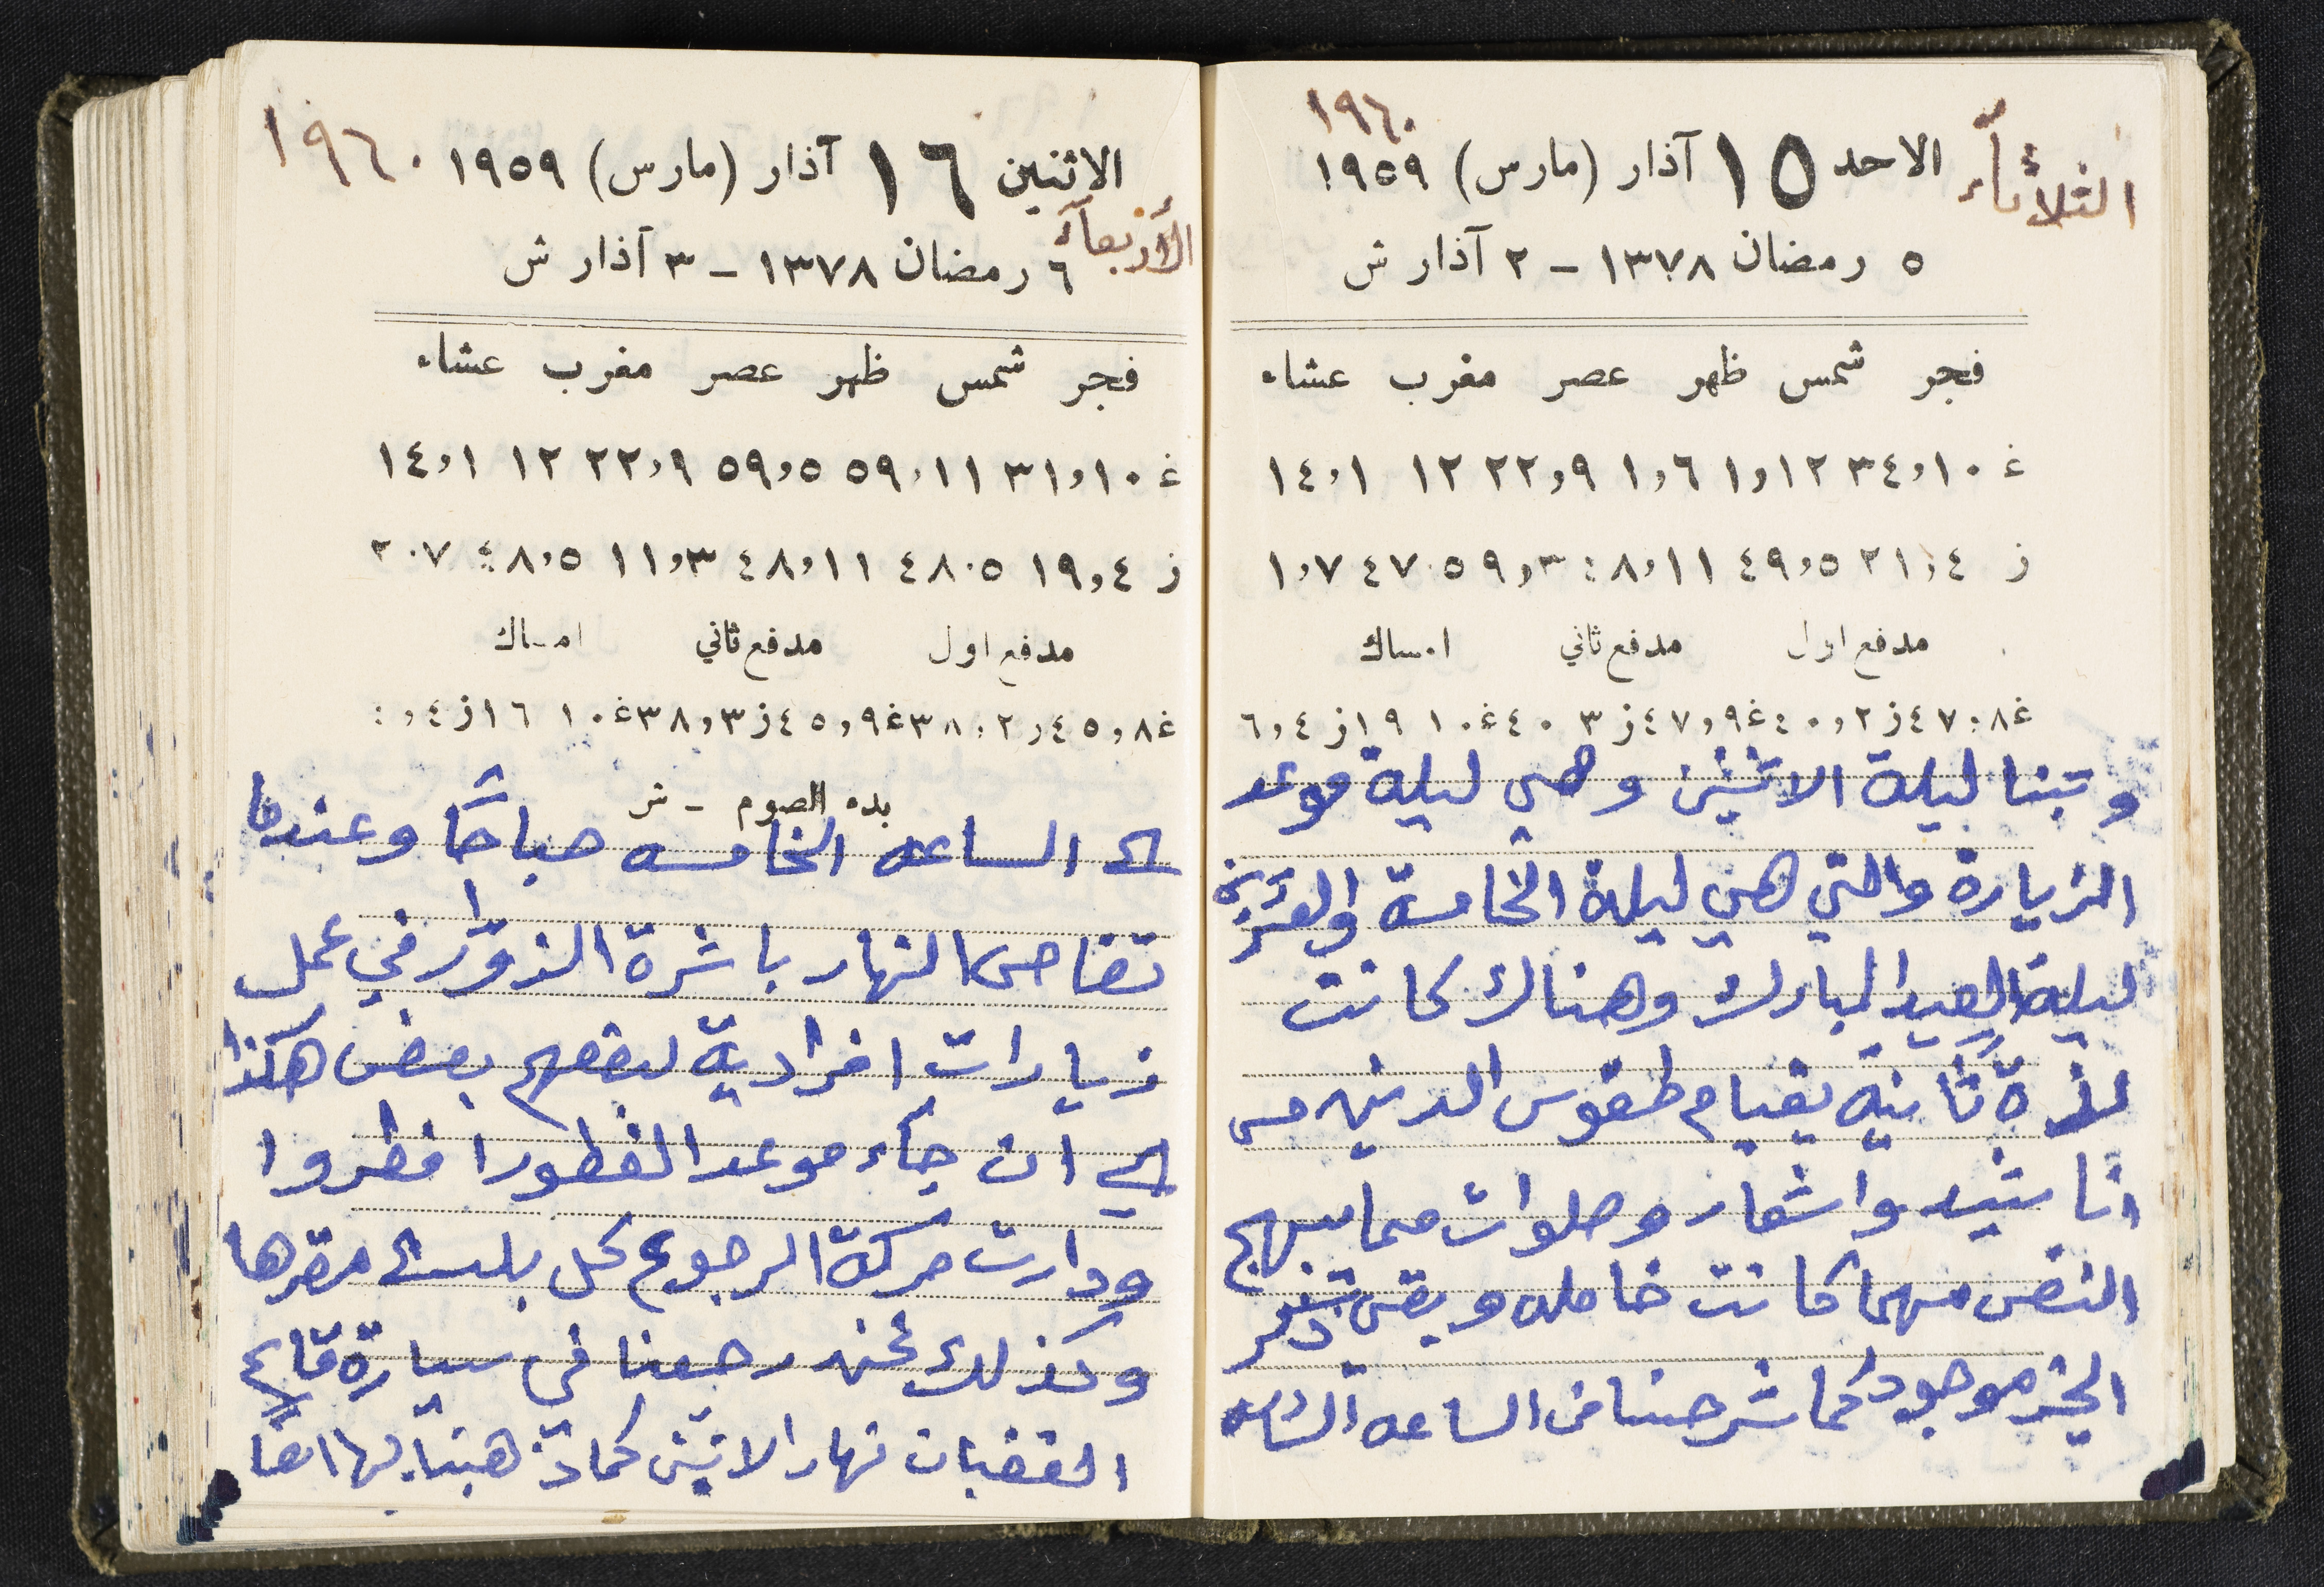 ١٩٦٠
الثلاثاء الاحد ١٥ آذار (مارس) ١٩٥٩
٥ رمضان ١٣٧٨ – ٢ آذار ش
فجر شمس ظهر عصر مغرب عشاء
غ ١٠,٣٤ ١٢,١ ٦,١ ٩,٢٢ ١٢ ١,١٤
ز ٤,٢١ ٥,٤٩ ١١,٤٨ ٣,٩ ٥,٤٧ ٧,١
مدفع اول مدفع ثاني امساك
غ ٨,٤٧ ز ٢,٤٠ غ ٩,٤٧ ز ٣,٤٠ غ ١٠,١٩ ز ٤,٦
وتبنا ليلة الاثنين وهي ليلة موعد
الزيارة والتي هي ليلة الخامسة والعزيزة
ليلة العيد المبارك وهناك كانت
لذة ثانية بقيام طقوس الدينيه من
اناشيد واشعار وصلوات مما يبهج
النفس مهما كانت خامله وبقى
الخير موجود كما شرحنا من الساعه
١٩٦٠
الاثنين ١٦ آذار (مارس) ١٩٥٩
الأربعاء
٦ رمضان ١٣٧٨ – ٣ آذار ش
فجر شمس ظهر عصر مغرب عشاء
غ ١٠,٣١ ١١,٥٩ ٥,٥٩ ٩,٢٢ ١٢ ١,١٤
ز ٤,١٩ ٥,٤٨ ١١,٤٨ ٣,١١ ٥,٤٨ ٧,٢
مدفع اول مدفع ثاني امساك
غ ٨,٤٥ ز ٢,٣٨ غ ٩,٤٥ ز ٣,٣٨ غ ١٠,١٦ ز ٤,
بدء الصوم – ش
الى الساعه الخامسه صباحًا وعندما
تضاحى النهار باشرة الزوّار في عمل
زيارات افرادية لبعضهم بعض هكذا
الى ان جاء موعد الفطور افطروا
ودارت حركة الرجوع كل بلد مقرها
وكذلك نحن رجعنا في سيارة
القضبان نهار الاثنين كما ذهبنا بها